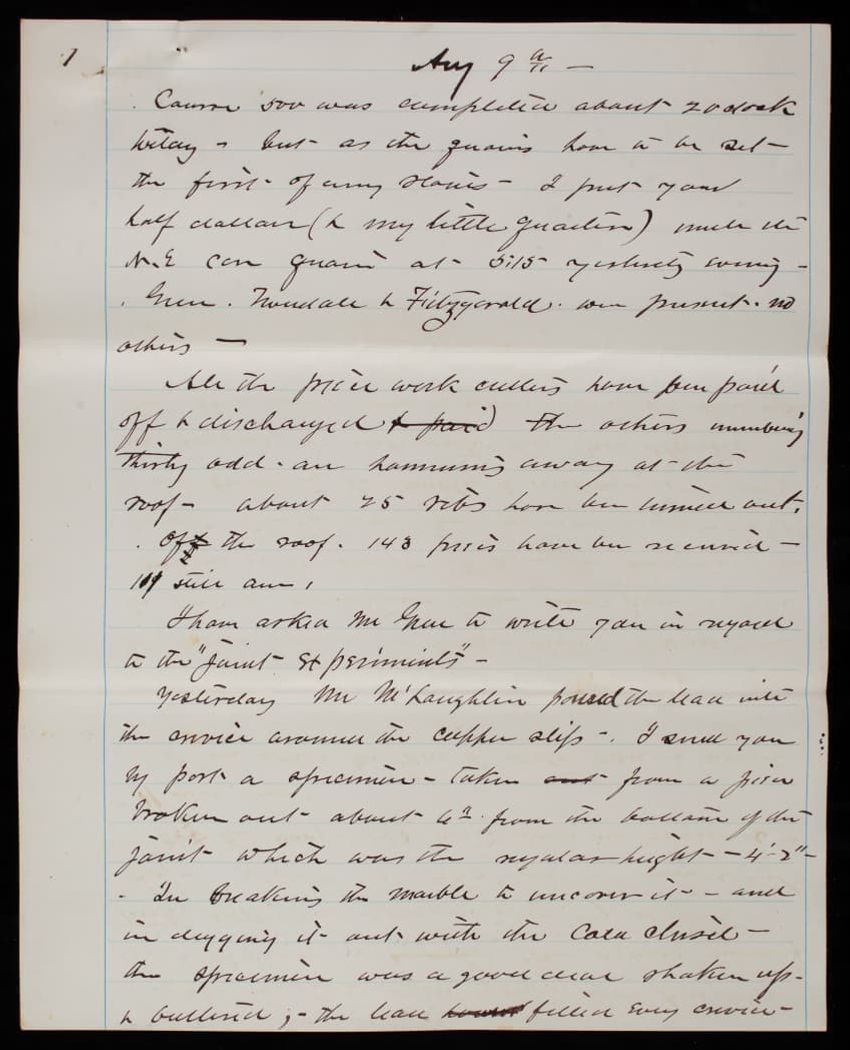 1
Aug 9th —
Course 500 was completed about 2 oclock
today - but as the quoins have to be set
the first of any stones - I put your
half dollar (& my little quarter) under the
N.E. corn quoin at 5:15 yesterday evening -
Green. Tweedale & Fitzgerald. were present. no
others —
All the piece work cutters have been paid
off & discharged & paid the others numbering
thirty odd - are hammering away at the
roof - about 25 ribs have been turned out.
Of the roof. 143 pieces have been received -
119 still due,
I have asked Mr Green to write you in regard
to the "Joint Experiments" -
Yesterday Mr McLaughlin poured the lead into
the crevice around the copper slips -. I send you
by post a specimen - taken out from a piece
broken out about 6" from the bottom of the
joint which was the regular height - 4'-2" -
- In breaking the marble to uncover it - and
in digging it out with the cold chisel -
the specimen was a good deal shaken up -
& battered ; - the lead filled every crevice -